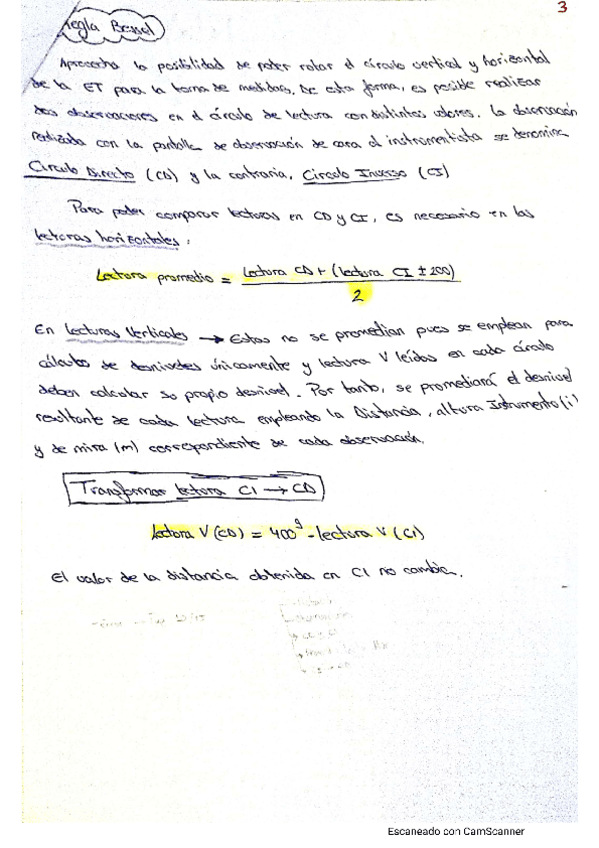 3
Regla Bessel
Aprovecha la posibilidad de poder rotar el círculo vertical y horizontal
de la ET para la toma de medidas. De esta forma, es posible realizar
dos observaciones en el círculo de lectura con distintos valores. La observación
realizada con la pantalla de observación de cara al instrumentista se denomina
Círculo Directo (CD) y la contraria, Círculo Inverso (CI)
Para poder comparar lecturas en CD y CI, es necesario en las
lecturas horizontales:
Lectura promedio = lectura CD + (lectura CI ± 200)
2
En lecturas verticales → Estas no se promedian pues se emplean para
cálculo de desniveles únicamente y lectura V leídas en cada círculo
deben calcular su propio desnivel. Por tanto, se promediará el desnivel
resultante de cada lectura empleando la Distancia, altura Instrumento (i)
y de mira (m) correspondiente de cada observación.
Transformar lectura CI → CD
lectura V (CD) = 400g - lectura V (CI)
El valor de la distancia obtenida en CI no cambia.
Escaneado con CamScanner